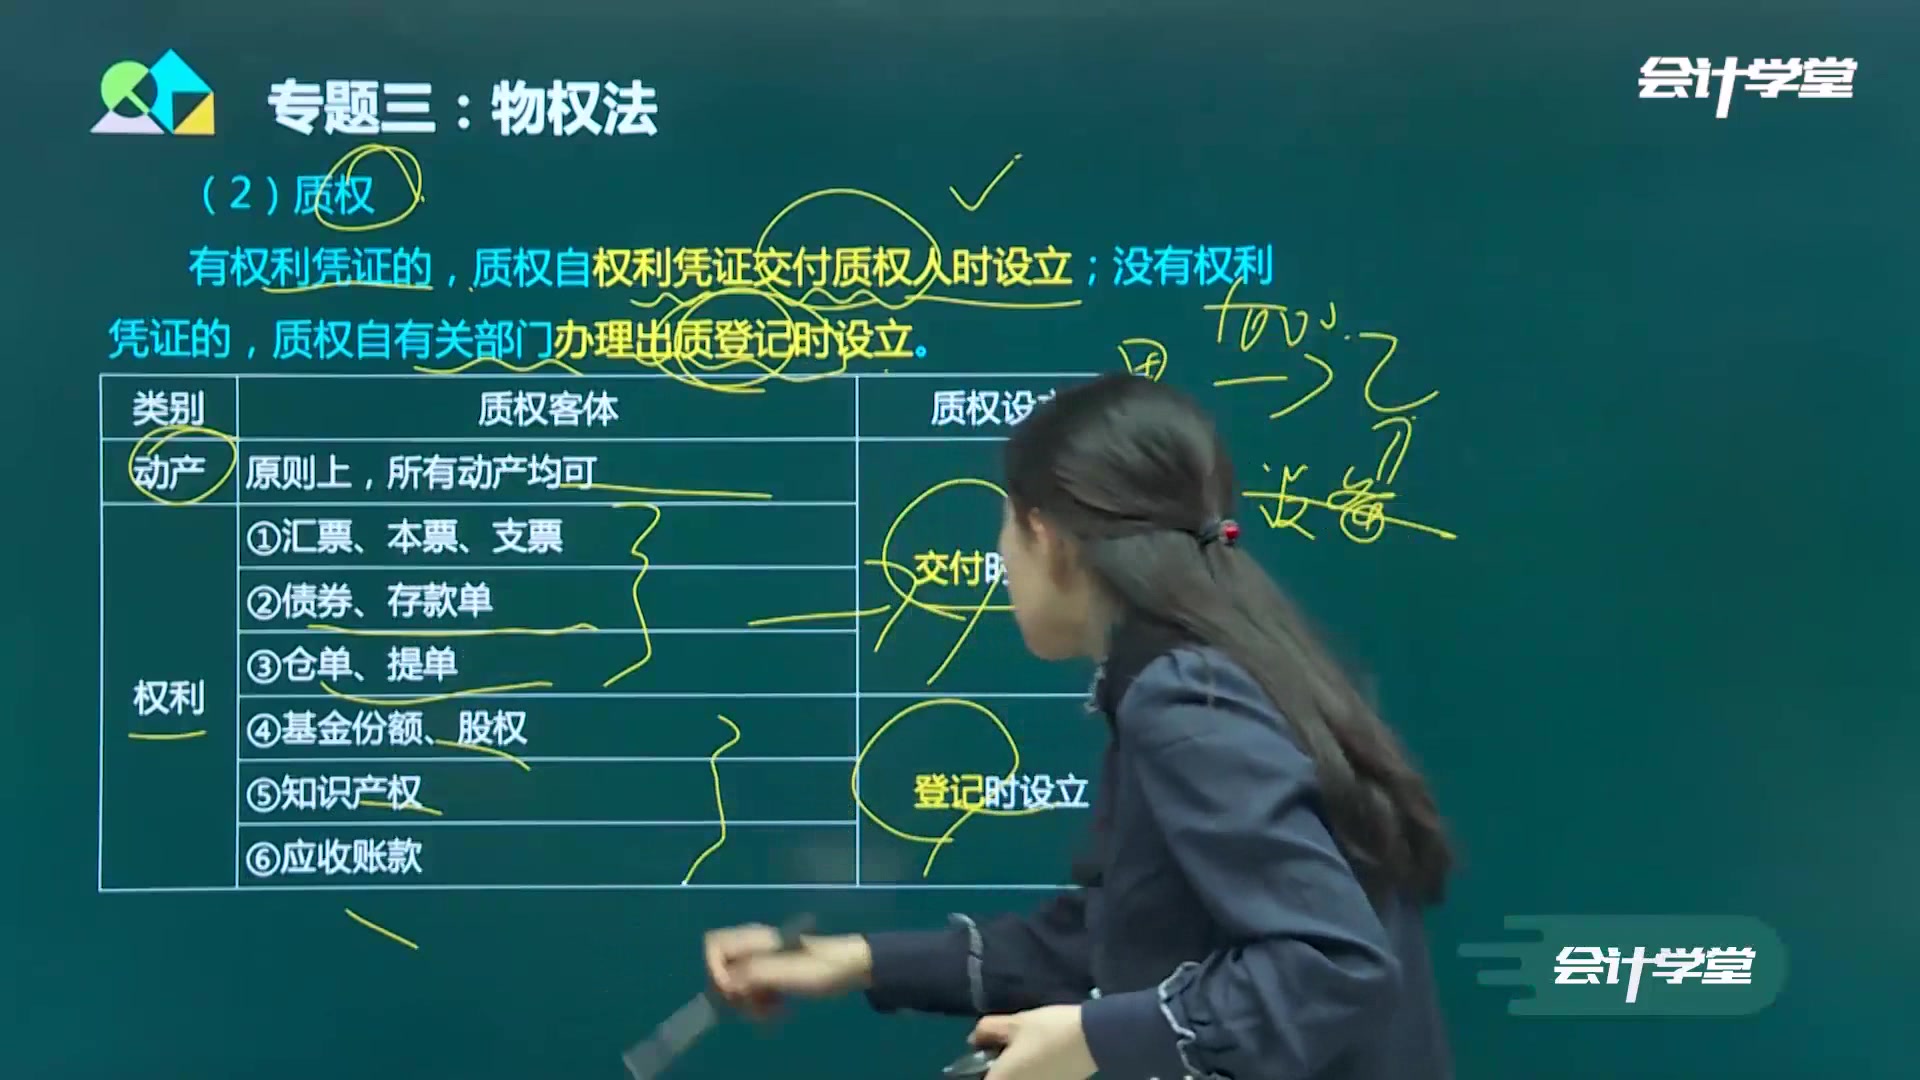 会计学堂
专题三：物权法
（2）质权
有权利凭证的，质权自权利凭证交付质权人时设立；没有权利
凭证的，质权自有关部门办理出质登记时设立。
类别 质权客体 质权设
动产 原则上，所有动产均可
交付时
权利
①汇票、本票、支票
②债券、存款单
③仓单、提单
④基金份额、股权
登记时设立
⑤知识产权
⑥应收账款
甲
100
乙
会计学堂